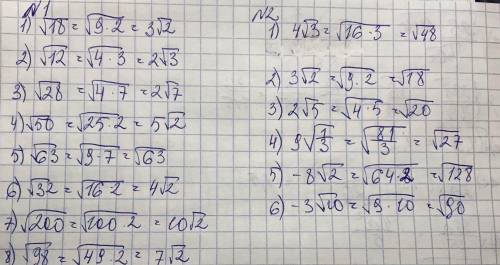 №1
1) √18 = √9·2 = 3√2
2) √12 = √4·3 = 2√3
3) √28 = √4·7 = 2√7
4) √50 = √25·2 = 5√2
5) √63 = √9·7 = √63
6) √32 = √16·2 = 4√2
7) √200 = √100·2 = 10√2
8) √98 = √49·2 = 7√2
№2
1) 4√3 = √16·3 = √48
2) 3√2 = √9·2 = √18
3) 2√5 = √4·5 = √20
4) 9√1/3 = √81/3 = √27
5) -8√2 = √64·2 = √128
6) -3√10 = √9·10 = √90